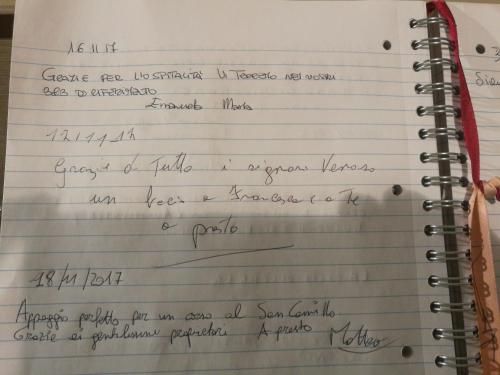 16 11 17
GRAZIE PER L'OSPITALITÀ NEI NOSTRI
B&B DI RIFERIMENTO
Emanuela Mario
17/11/17
Grazie d Tutto i signori
un bacio a Francesca e a Te
a presto
18/11/2017
Appoggio perfetto per un corso al San Camillo
Grazie ai gentilissimi proprietari A presto Matteo